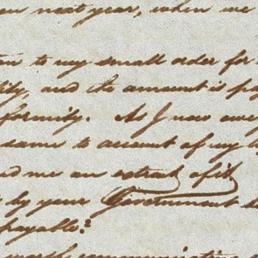 next year, when we
to my small order for
and the amount is pa
formity. As I now owe
same to account of my
me an extrait of it
by your Government
payable?